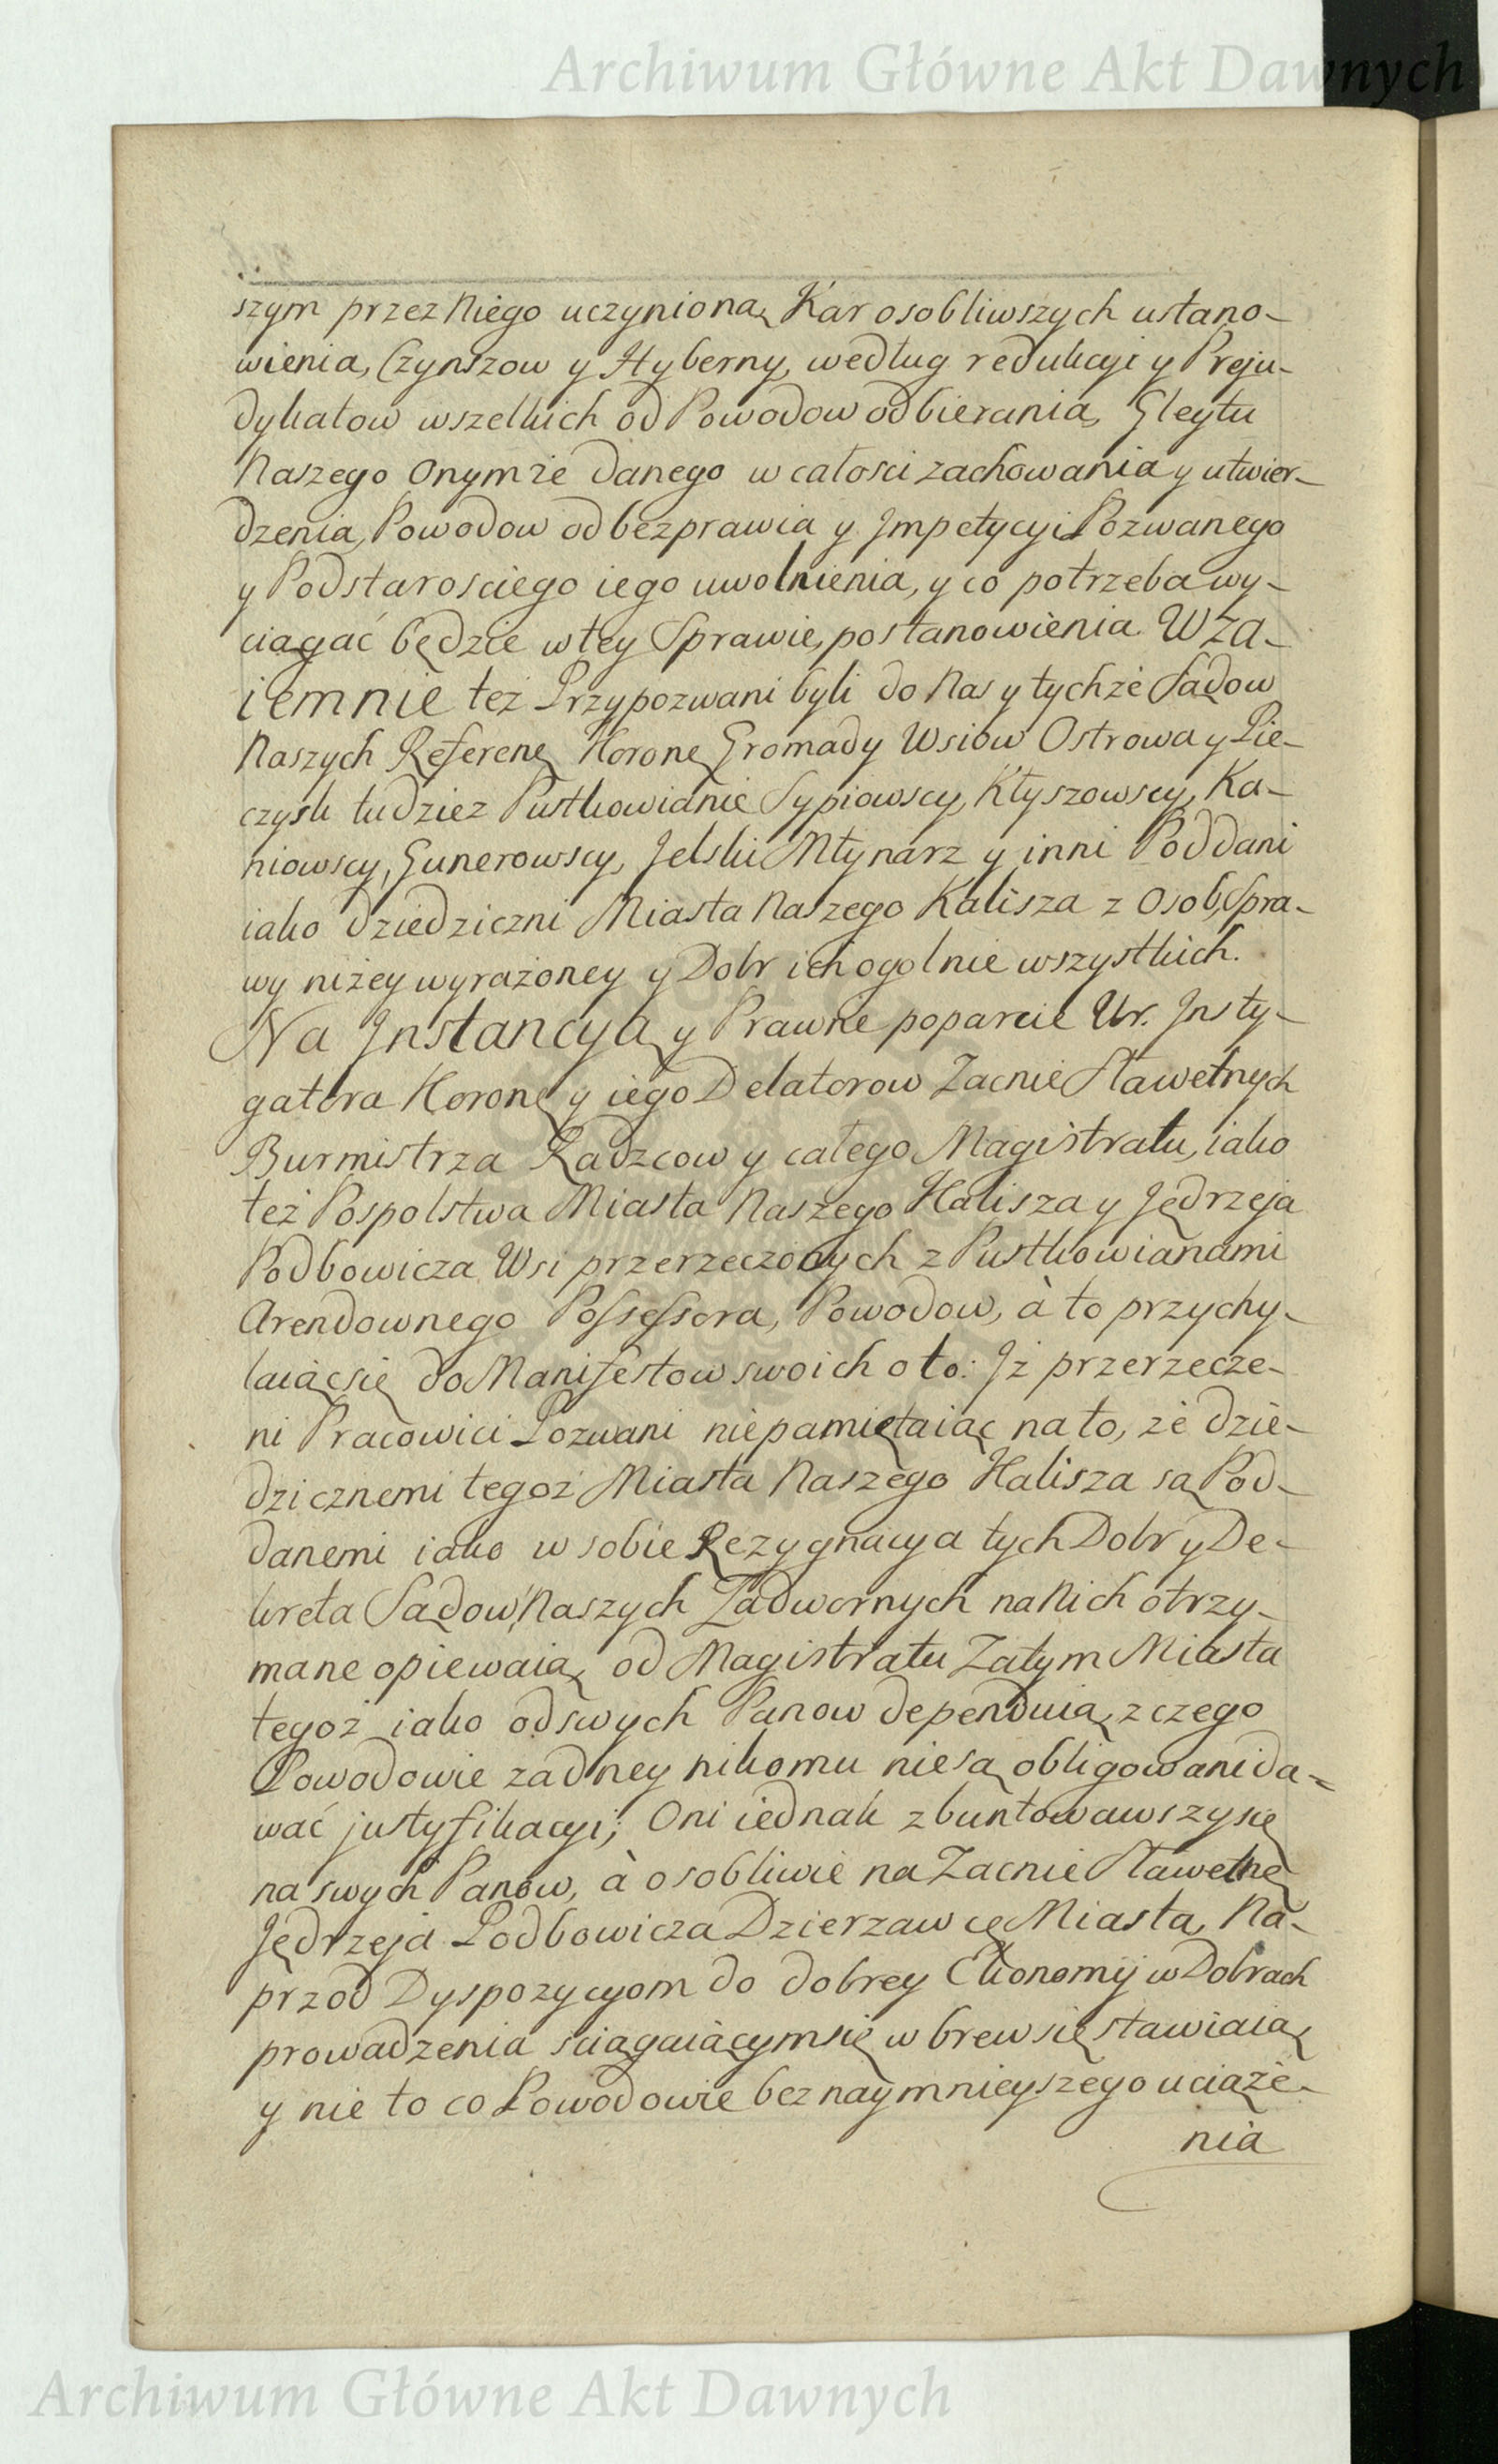 Archiwum Główne Akt Dawnych
szym przez Niego uczyniona, Kar osobliwszych ustano-
wienia, Czynszow y Hyberny, według redukcyi y Preju-
dykatow wszelkich od Powodow odbierania, Gleytu
Naszego Onymże danego w całosci zachowania y utwier-
dzenia, Powodow od bezprawia y Impetycyi Pozwanego
y Podstarosciego iego uwolnienia, y co potrzeba wy-
ciągać będzie w tey Sprawie, postanowienia. Wza-
iemnie też Przypozwani byli do Nas y tychże Sądow
Naszych Referen Koron Gromady Wsiow Ostrowa y Pie-
czysk tudzież Pustkowianie Sypiowscy, Kłyszowscy, Ka-
niowscy, Gunerowscy, Jelski Młynarz y inni Poddani
iako dziedziczni Miasta Naszego Kalisza z Osob, Spra-
wy niżey wyrażoney y Dobr ich ogolnie wszystkich.
Na Instancyą y Prawne poparcie Ur. Insty-
gatora Koron y iego Delatorow Zacnie Sławetnych
Burmistrza Radzcow y całego Magistratu, iako
też Pospolstwa Miasta Naszego Kalisza y Jędrzeja
Podbowicza Wsi przerzeczonych z Pustkowianami
Arendownego Possessora, Powodow, à to przychy-
laiąc się do Manifestow swoich o to: Iż przerzecze-
ni Pracowici Pozwani niepamiętaiąc na to, że dzie-
dzicznemi tegoż Miasta Naszego Kalisza są Pod-
danemi iako w sobie Rezygnacya tych Dobr y De-
kreta Sądow Naszych Zadwornych na Nich otrzy-
mane opiewaią, od Magistratu Zatym Miasta
tegoż iako od swych Panow dependuią, z czego
Powodowie żadney nikomu nie są obligowani da-
wać justyfikacyi; Oni iednak zbuntowawszy się
na swych Panow, à osobliwie na Zacnie Sławetne
Jędrzeja Podbowicza Dzierzawcę Miasta, Na-
przod Dyspozycyom do dobrey Ekonomij w Dobrach
prowadzenia sciągaiącym się w brew się stawiaią
y nie to co Powodowie bez naymnieyszego uciąże-
nia
Archiwum Główne Akt Dawnych